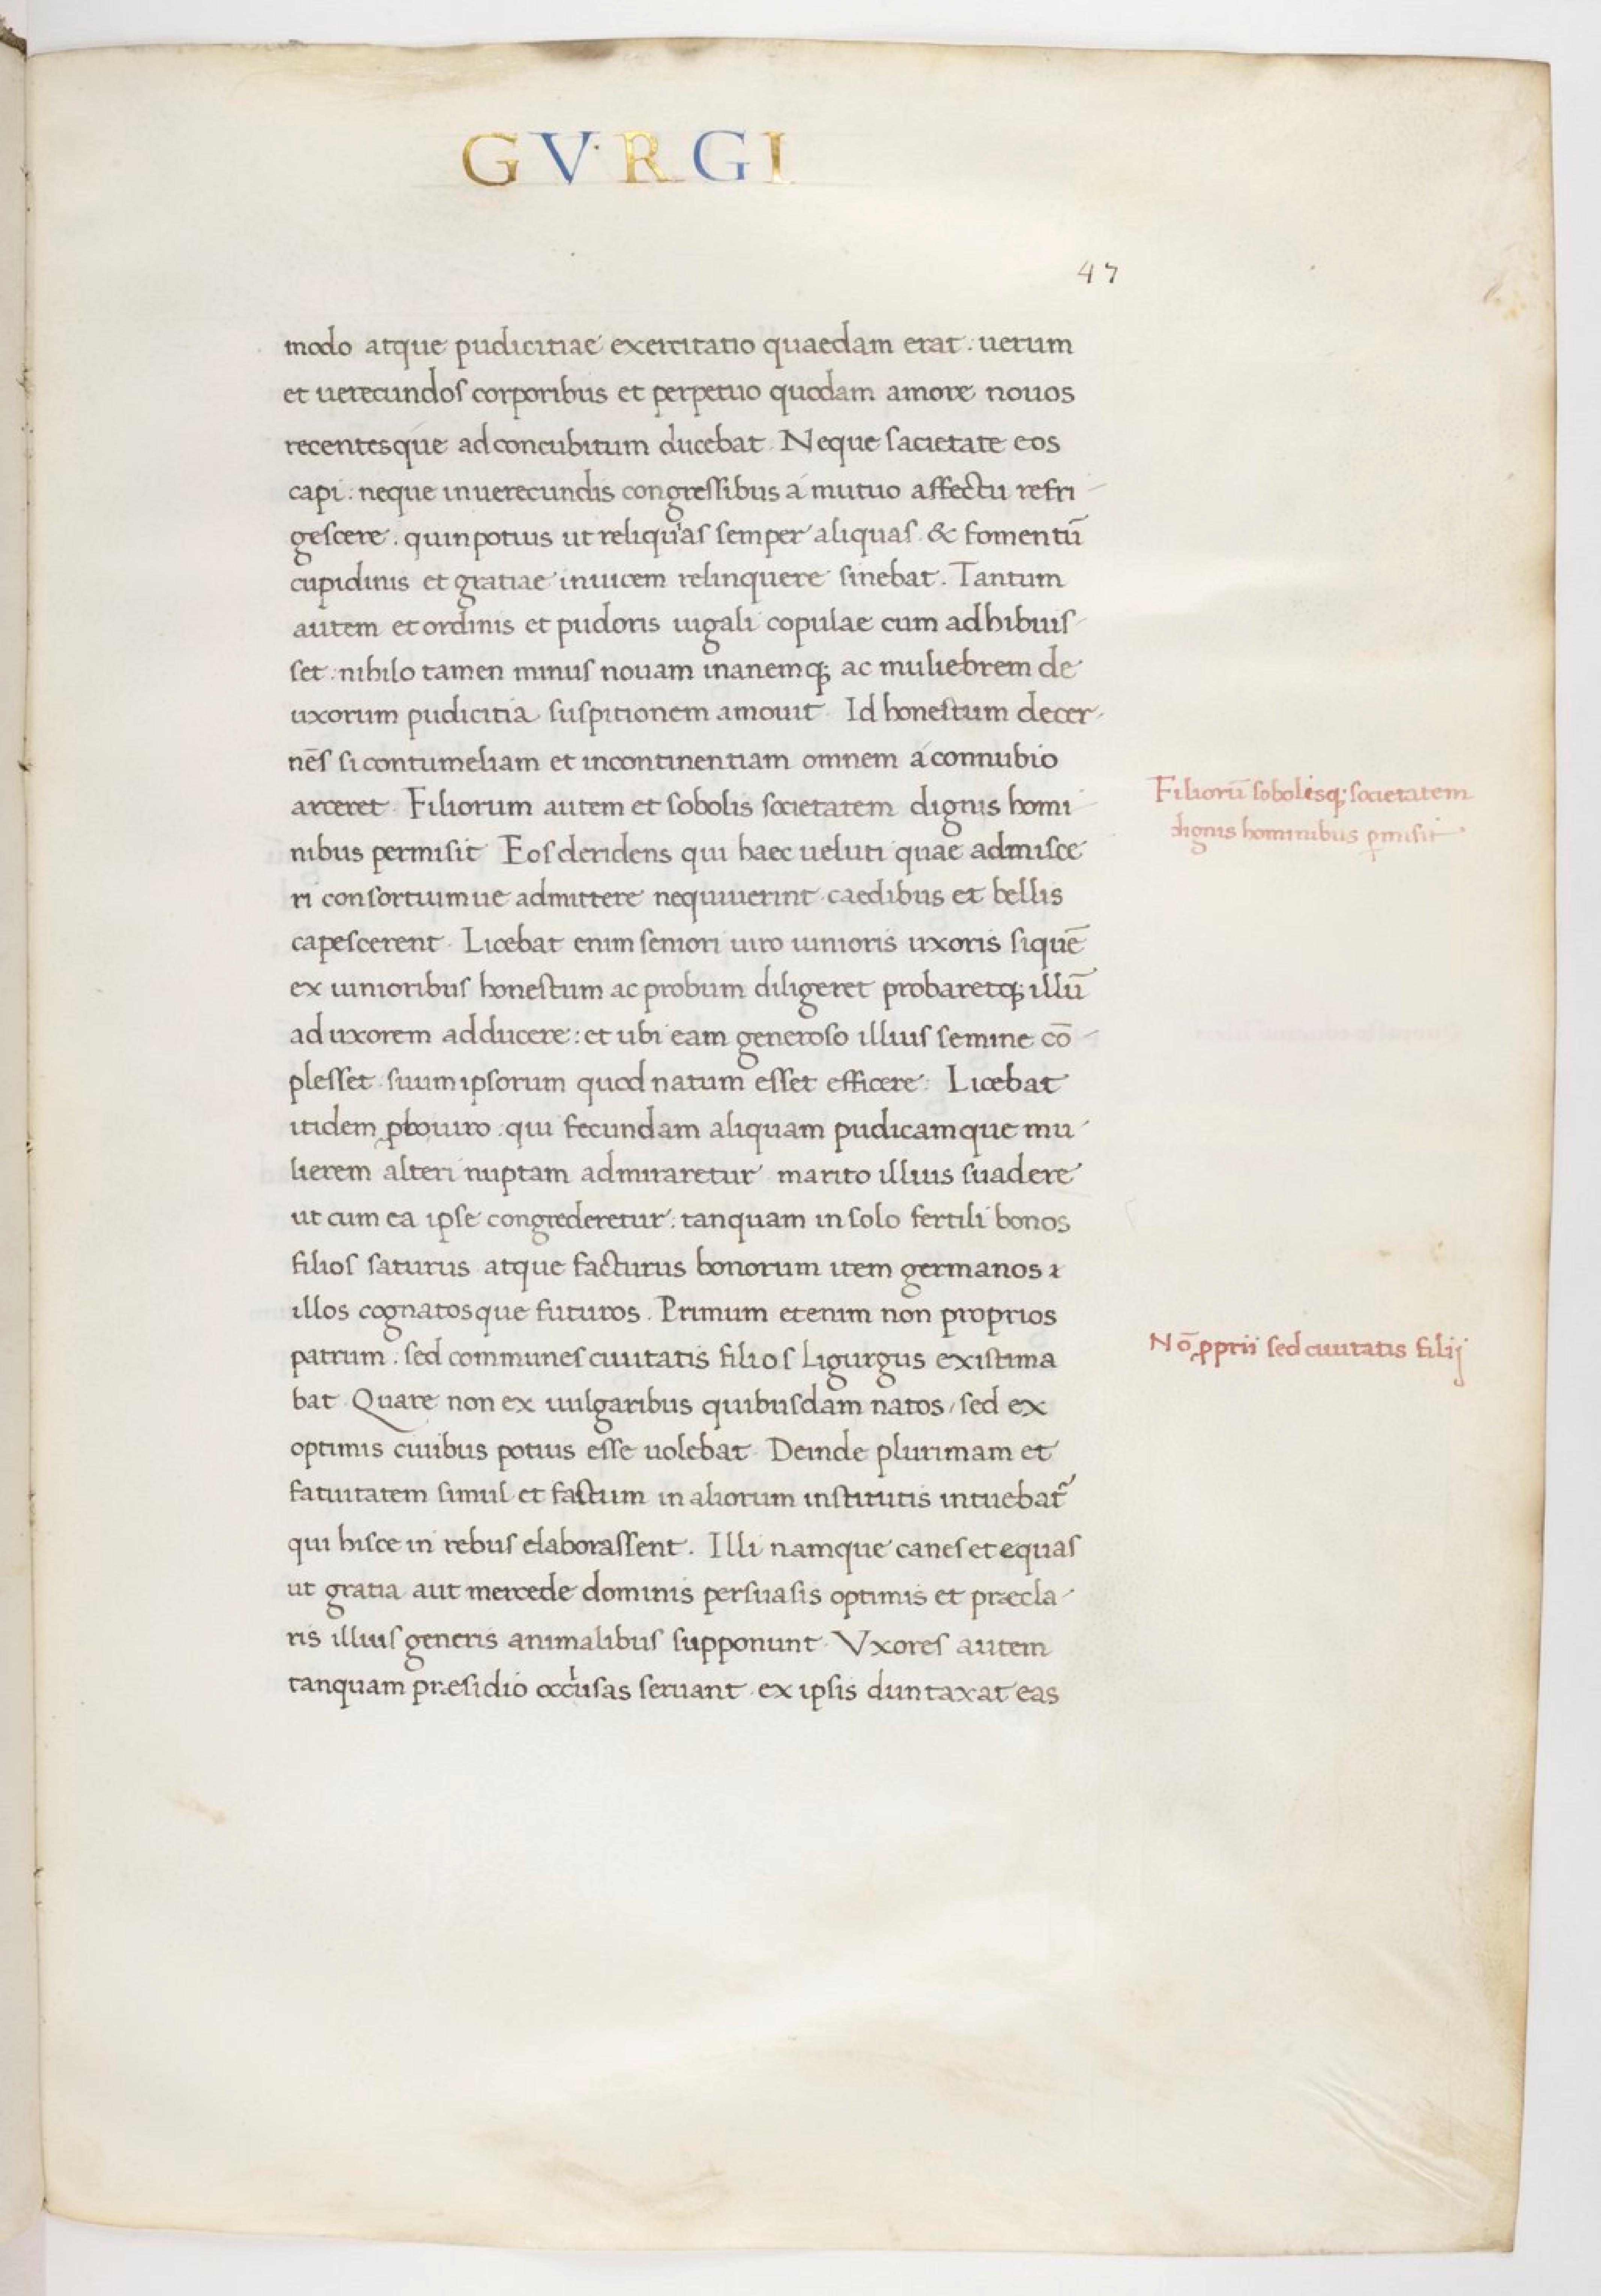 GV·RGI
47
modo atque pudicitiae exercitatio quaedam erat : uerum
et uerecundos corporibus et perpetuo quodam amore nouos
recentesque ad concubitum ducebat. Neque sacietate eos
capi : neque inuerecundis congressibus á mutuo affectu refri-
gescere : quinpotius ut reliquias semper aliquas & fomentū
cupidinis et gratiae inuicem relinquere sinebat. Tantum
autem et ordinis et pudoris iugali copulae cum adhibuis-
set : nihilo tamen minus nouam inanemq; ac muliebrem de
uxorum pudicitia suspitionem amouit. Id honestum decer-
nēs si contumeliam et incontinentiam omnem á connubio
arceret. Filiorum autem et sobolis societatem dignis homi-
nibus permisit. Eos deridens qui haec ueluti quae admisce
ri consortiumue admittere nequiuerint caedibus et bellis
capescerent. Licebat enim seniori uiro iunioris uxoris siquē
ex iunioribus honestum ac probum diligeret probaretq; illū
ad uxorem adducere : et ubi eam generoso illius semine cō-
plesset suum ipsorum quod natum esset efficere : Licebat
itidem ꝓbo uiro : qui fecundam aliquam pudicamque mu-
lierem alteri nuptam admiraretur marito illius suadere
ut cum ea ipse congrederetur : tanquam in solo fertili bonos
filios saturus atque facturus bonorum item germanos ⁊
illos cognatosque futuros. Primum etenim non proprios
patrum : sed communes ciuitatis filios Ligurgus existima
bat. Quare non ex uulgaribus quibusdam natos / sed ex
optimis ciuibus potius esse uolebat. Deinde plurimam et
fatuitatem simul et fastum in aliorum institutis intuebat̃
qui hisce in rebus elaborassent. Illi namque canes et equas
ut gratia aut mercede dominis persuasis optimis et præcla-
ris illius generis animalibus supponunt. Vxores autem
tanquam præsidio occlusas seruant ex ipsis duntaxat eas
Filiorū sobolisq; societatem
dignis hominibus ꝑmisit
Nō ꝓprii sed ciuitatis filij